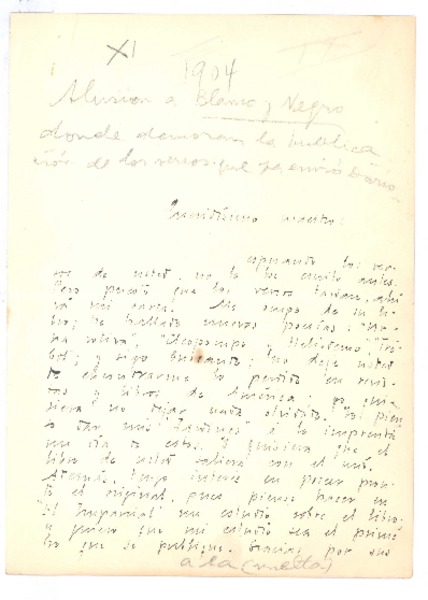 XI
1904
Alusion a Blanco y Negro
donde demoran la publica
ción de los versos que ya envió Darío.
Queridísimo maestro:
esperando los ver-
sos de usted, no le he escrito antes.
Pero puesto que los versos tardan, ahí
va mi carta. Me ocupo de su li-
bro; he hallado nuevas poesías:
y Helio
y sigo buscando; no deje usted
de enviarme lo perdido en revis-
tas y libros de América; yo qui-
siera no dejar nada olvidado.
a dar mis "Jardines" á la imprenta
un día de estos. Y quisiera que el
libro de usted saliera con el mío.
Además, tengo interés en poseer pron-
to el original, pues pienso hacer en
"El Imparcial" un estudio sobre el libro;
y quiero que mi estudio sea el prime-
ro que se publique. Gracias por sus
a la (vuelta)